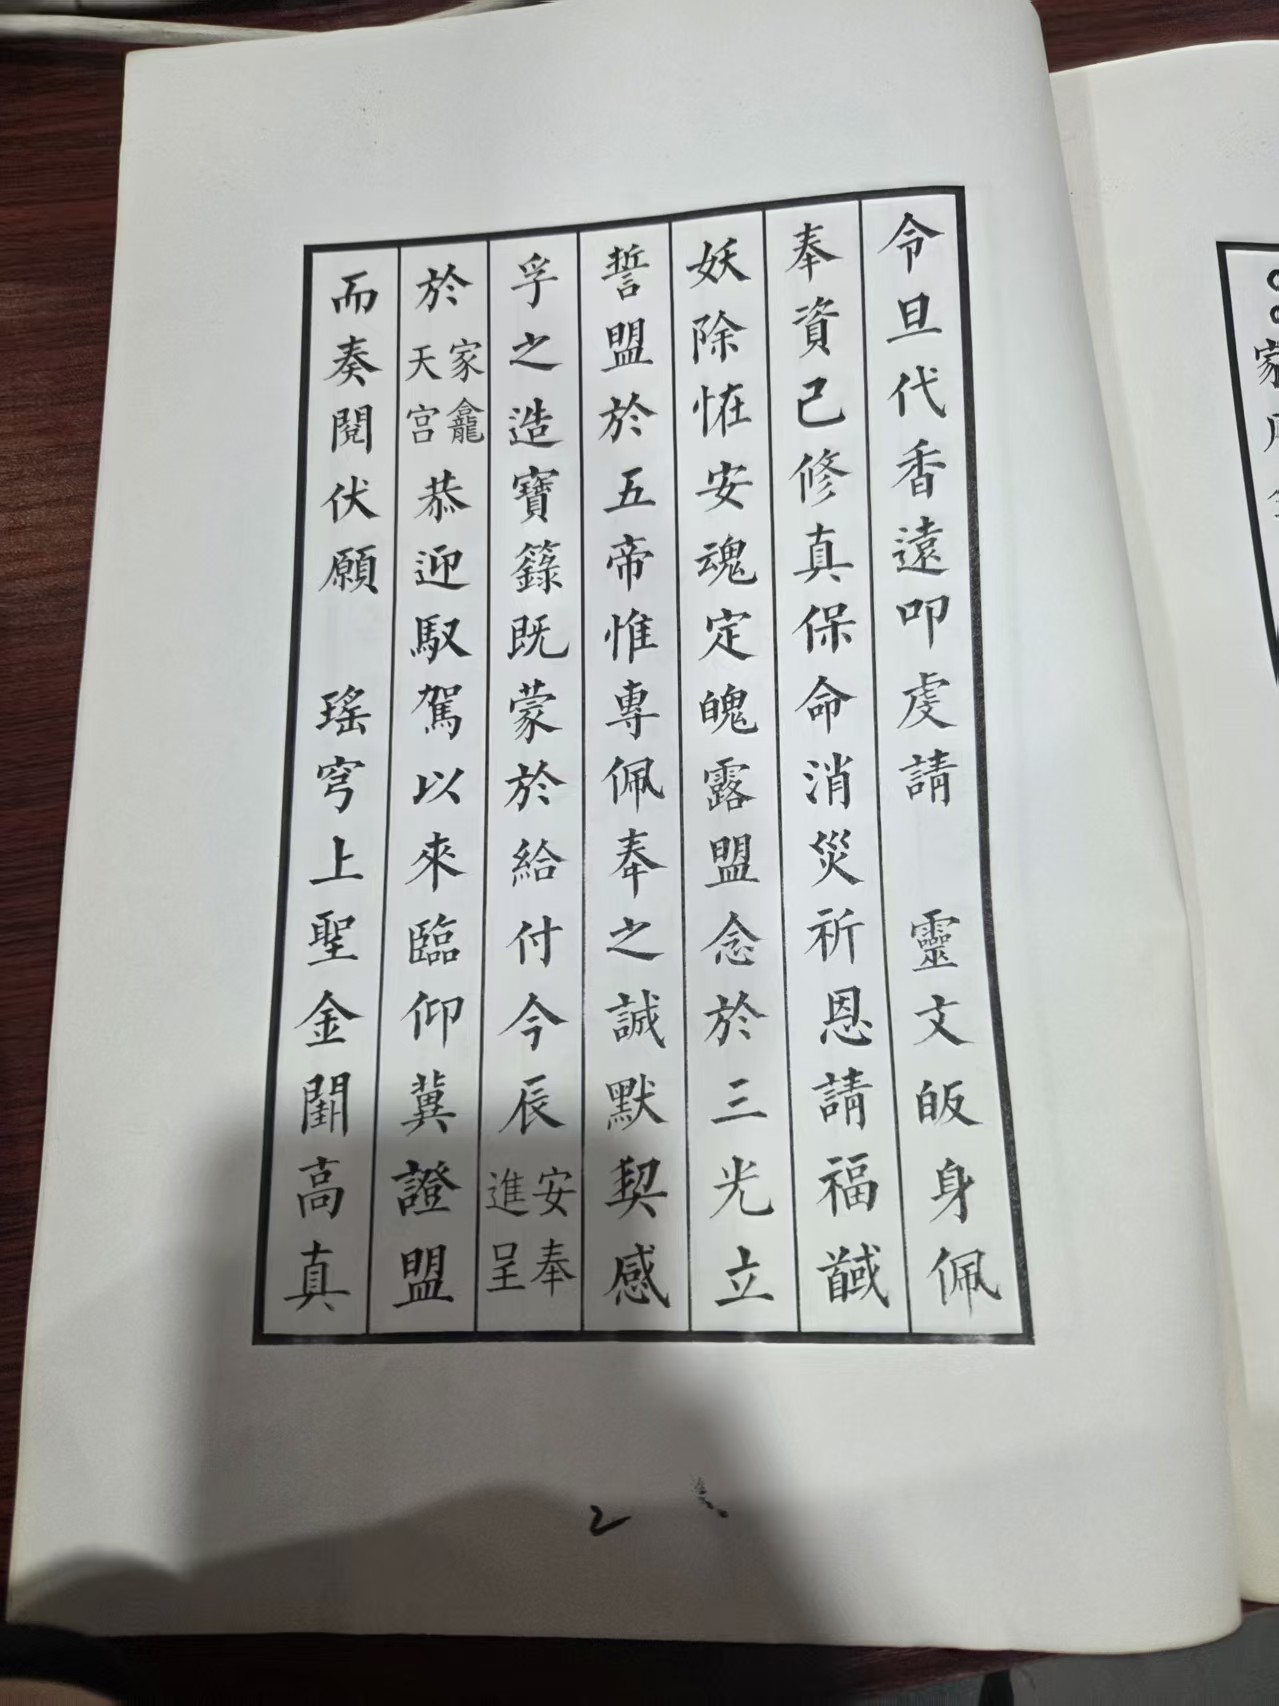 令旦代香遠叩虔請　靈文皈身佩
奉資己修真保命消災祈恩請福馘
妖除恠安魂定魄露盟念於三光立
誓盟於五帝惟專佩奉之誠默契感
孚之造寶籙既蒙於給付今辰安奉進呈
於家龕天宮恭迎馭駕以來臨仰冀證盟
而奏閱伏願　瑤穹上聖金闕高真
2